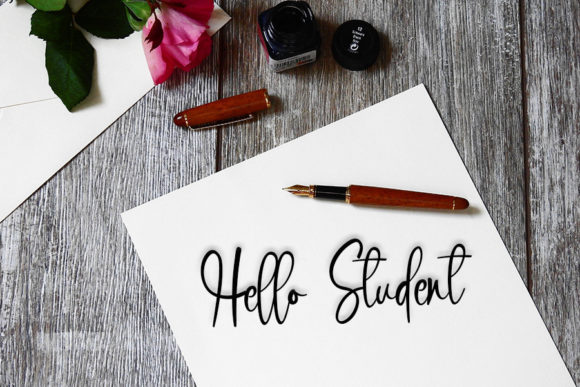 Hello Student